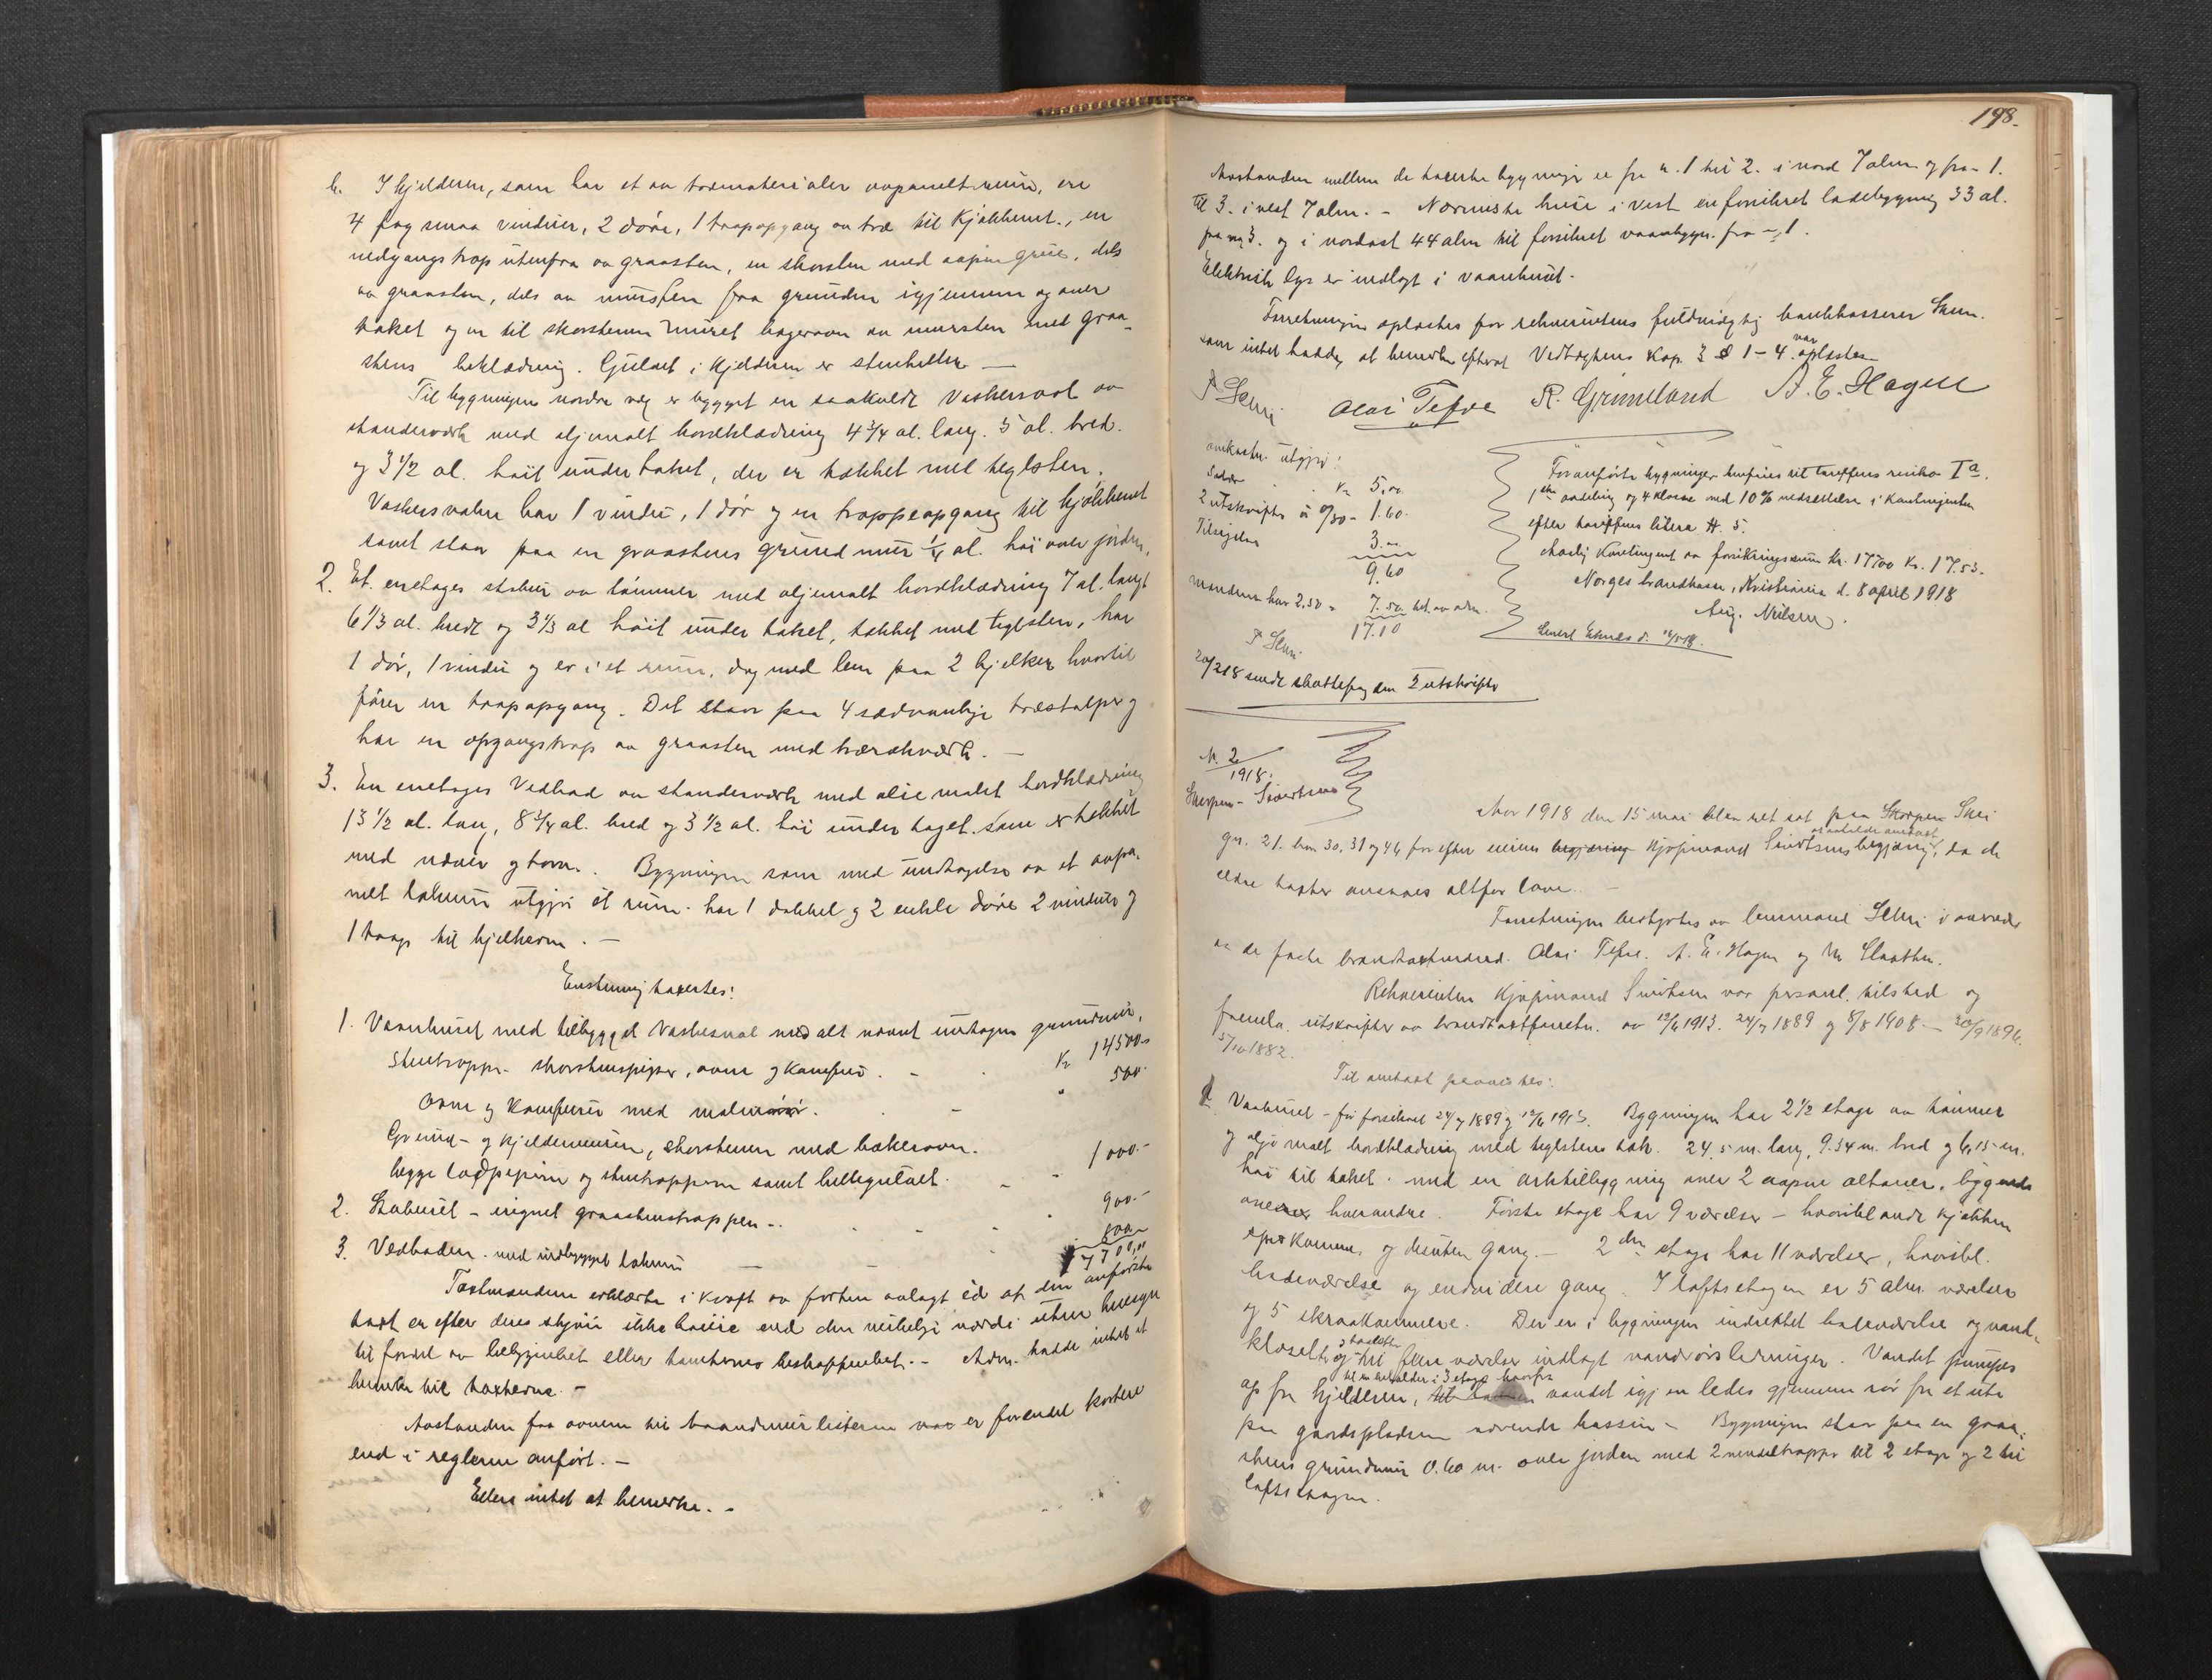 b. I kjelderen, som har et av træmaterialer avpanelt rum, er
4 fag smaa vinduer, 2 döre, 1 trapopgang av træ til Kjökkenet, en
nedgangstrap utenfra av graasten, en skorsten med aapen grue, dels
av graasten, dels av mursten fra grunden igjennem og over
taket og en til skorstenen muret bagerovn av mursten med graa-
stens beklædning. Gulvet i Kjelderen er stenheller —
Til bygningens nordre væg er bygget en saakaldt Vaskersval av
standerværk med oljemalt bordklædning 4 3/4 al. lang. 5 al. bred.
og 3 1/2 al. höit under taket, der er tækket med teglsten.
Vaskersvalen har 1 vindu, 1 dör og en trappeopgang til kjökkenet
samt staar paa en graastens grundmur 1/4 al. höi over jorden.
2. Et enetages stabur av tömmer med oljemalt bordklædning 7 al. langt
6 1/3 al. bredt og 3 1/3 al höit under taket, tækket med teglsten, har
1 dör, 1 vindu og er i et rum, dog med lem paa 2 bjelker hvortil
förer en trapopgang. Det staar paa 4 sædvanlige træstolper og
har en opgangstrap av graasten med trærækværk. —
3. En enetages Vedbod av standerværk med olie malet bordklædning
13 1/2 al. lang, 8 3/4 al. bred og 3 1/2 al. höi under taget. som er tækket
med næver og torv. Bygningen som med undtagelse av et avpa-
nelt lokum utgjör et rum. har 1 dobbel og 2 enkle döre 2 vinduer og
1 trap til bjelkerne. —
Enstemmig taxertes:
1. Vaanhuset med tilbygget Vaskesval med alt navnt undtagen grundmur,
Stentrappe- skorstenspiper, ovne og Komfur. - Kr 14500.-
Ovne og Komfurer med 500.-
Grund- og Kjeldermuren, skorstenen med bakerovn.
begge og stentrapperne samt hellegulvet. - 1000.-
2. Staburet - iregnet graastenstrappen -. 900.-
3. Vedboden - med indbygget lokum — 800.-
17700,00
Taxtmændene erklærte i Kraft av forhen avlagt ed at den anförte
taxt er efter deres skjön ikke höiere end den virkelige værdi uten hensyn
til fordel av beliggenhet eller tomternes beskaffenhet. - Adm. hadde intet at
bemerke til taxterne. -
Avstanden fra ovnene til brandmurlisterne er for endel kortere
end i reglerne anfört. —
Ellers intet at bemerke. -
198.
Avstanden mellem de taxerte bygninger er fra n. 1 til 2. i nord 7 alen og fra - 1.
til 3. i vest 7 alen. - Nærmeste huse i vest er forsikret ladebygning 33 al.
fra no 3. og i nordost 44 alen til forsikret vaanbygn. fra - " 1.
Elektrisk lys er indlagt i vaanhuset.
Forretningen oplæstes for rekvirentens fuldmægtig bankkasserer Skem.
som intet hadde at bemerke efterat Vedtægtens Kap. 3 § 1-4 var oplæste.
Olai Tefre R. Grimeland A. E. Hagen
omkostn. utgjör:
Kr 5,00.
2 utskrifter á 0/80 - 1.60.
Tilsigelse 3.00
9.60
mændene hver 2.50 = 7.50 bet. av adm.
17.10
20/2 18 sendt skattefogden 2 utskrifter
Foranförte bygninger henföres til tariffens risiko I a.
1ste avdeling og 4 klasse med 10% nedsættelse i Kontingenten
efter tariffens litera H. 5.
Aarlig Kontingent av forsikringssum Kr. 17700 Kr. 17.53.
Norges brandkasse, Kristiania d. 8 april 1918
Aug. Nielsen.
N. 2
1918.
Skorpen - Sivertsen
Aar 1918 den 15 mai blev ret sat paa Skorpen Skei
gn. 21. bno 30, 31 og 46 for efter eierens Kjöpmand Sivertsens begjæring, da de
eldre taxter ansaaes altfor lave. —
Forretningen bestyrtes av lensmand i nærvær
av de faste brandtaxtmænd. Olai Tefre. A. E. Hagen og M. Slaatten.
Rekvirenten Kjöpmand Sivertsen var personl. tilsted og
fremla utskrifter av brandtaxtforretn. av 12/6 1913. 24/7 1889 og 8/8 1908 - 20/9 1896.
15/10 1882.
Til omtaxt paavistes:
1. Vaahuset - för forsikret 24/7 1889 og 12/6 1913. Bygningen har 2 1/2 etage av tömmer
og olje malt bordklædning med teglstens tak. 24.5 m. lang, 9.34 m. bred og 6,15 m.
höi til taket. med en arktilbygning over 2 aapne altaner, byggede
over hverandre. Förste etage har 9 værelser - hvoriblandt kjökken
spiskammer, og desuten gang. - 2den etage har 11 værelser, hvoribl.
badeværelse og endvidere gang. I loftsetagen er 5 alm. værelser
og 5 skraakammere. Der er i bygningen indrettet badeværelse og vand-
kloset, og til flere værelser indlagt vandrörsledninger. Vandet pumpes
op fra kjelderen, til en beholder i 3 etage hvorfra vandet igjen ledes gjennem rör fra et ute
paa gaardspladsen værende bassin - Bygningen staar paa en graa-
stens grundmur 0.60 m. over jorden med 2 vindeltrapper til 2 etage og 2 til
loftsetagen.